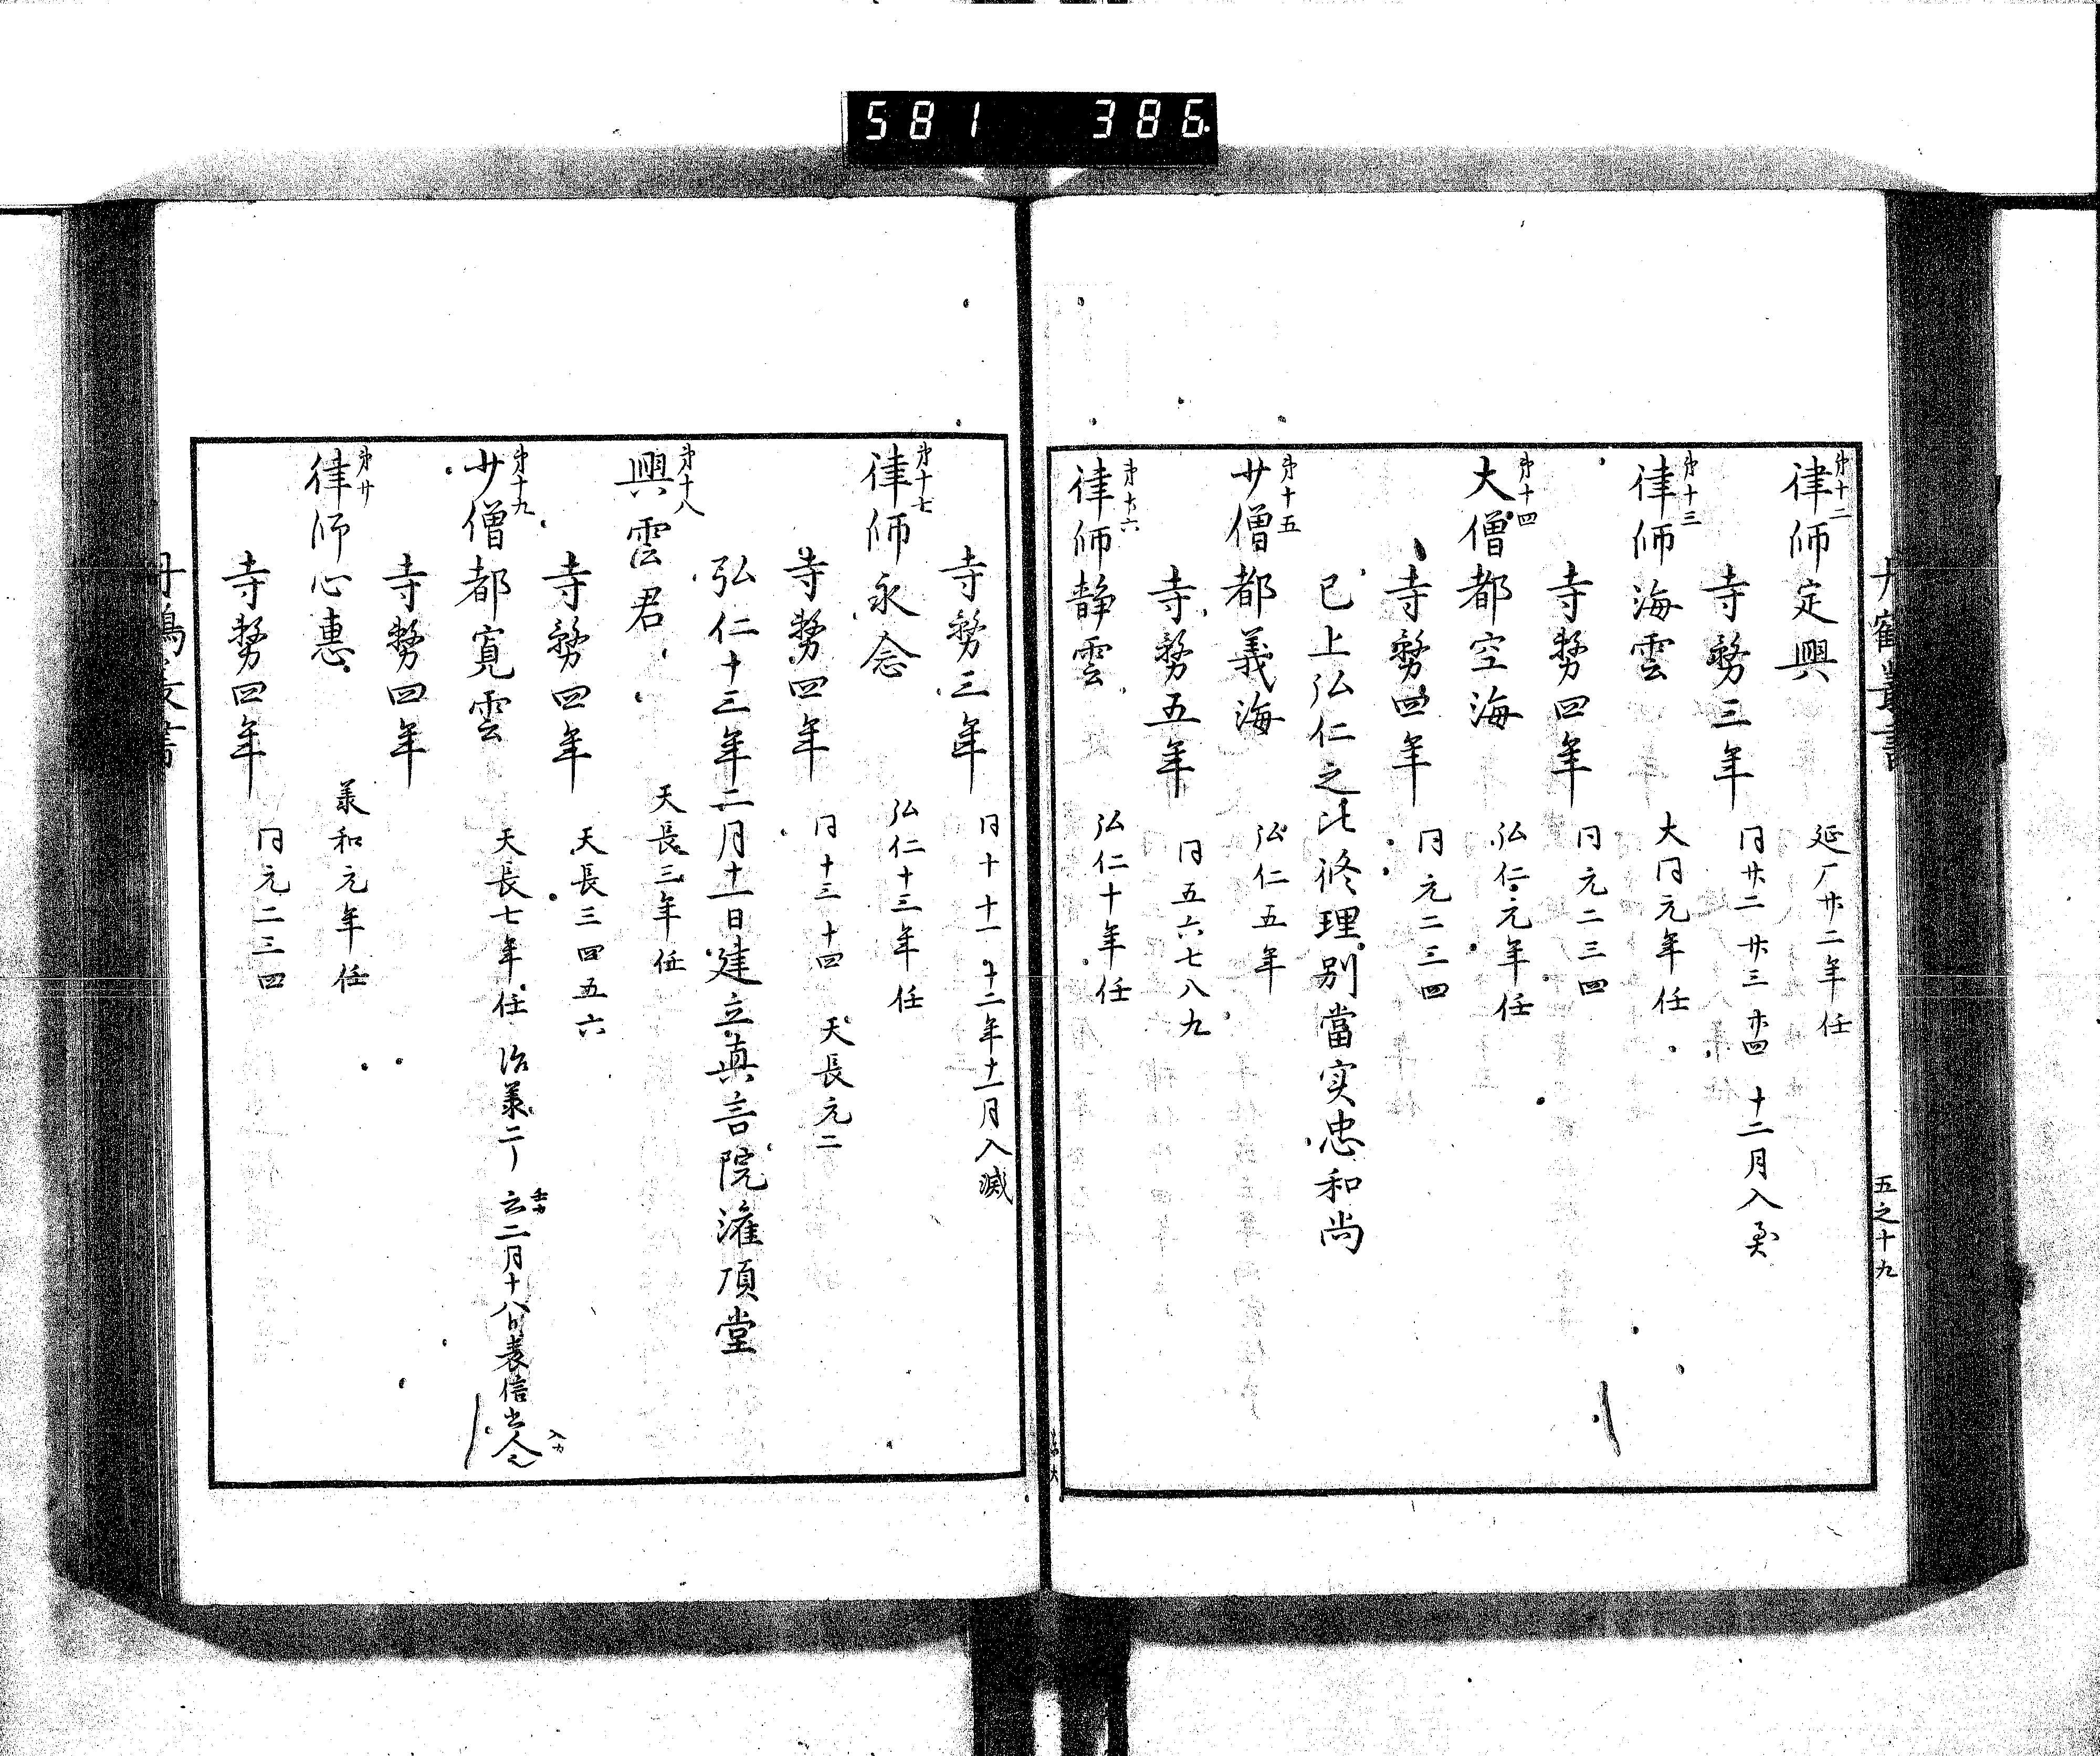 581 386
五之十九
第十二
律師定興 延厂廿二年任
寺務三年 同廿二 廿三 廿四 十二月入
第十三
律師海雲 大同元年任
寺務四年 同元二三四
第十四
大僧都空海 弘仁元年任
寺務四年 同元二三四
已上弘仁之比修理別當実忠和尚
第十五
少僧都義海 弘仁五年
寺務五年 同五六七八九
第十六
律師静雲 弘仁十年任
寺務三年 同十 十一 十二年十一月入滅
第十七
律師永念 弘仁十三年任
寺務四年 同十三 十四 天長元二
弘仁十三年二月十一日建立真言院灌頂堂
第十八
興雲君 天長三年任
寺務四年 天長三四五六
第十九
少僧都寛雲 天長七年任 治承二 二月十八日 信
寺務四年
第廿
律師心惠 承和元年任
寺務四年 同元二三四